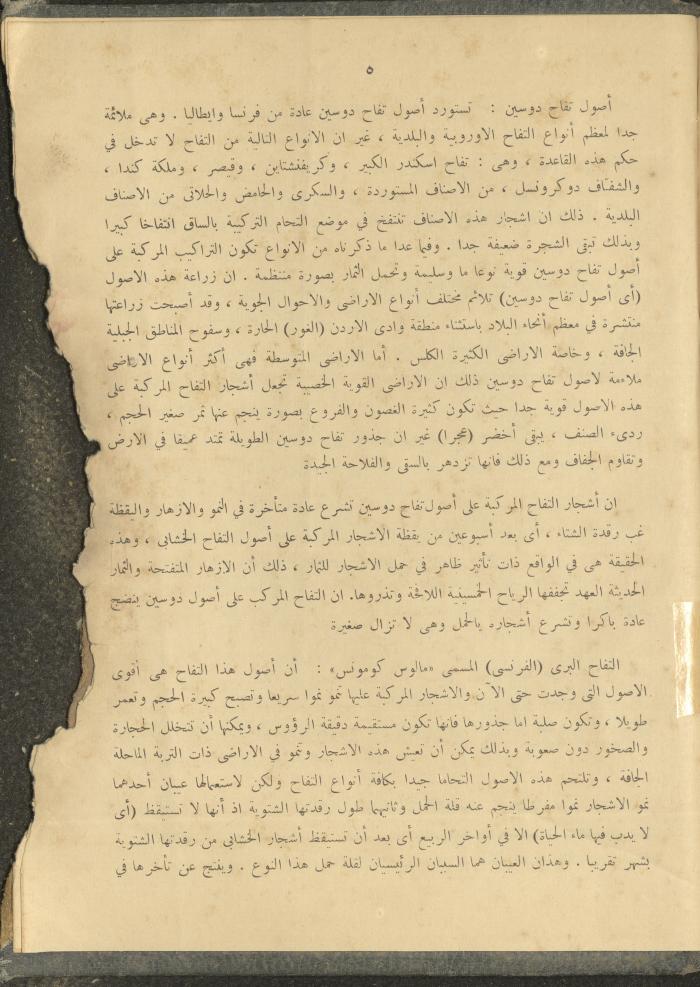 ٥
أصول تفاح دوسين : تستورد أصول تفاح دوسين عادة من فرنسا وايطاليا . وهى ملائمة
جدا لمعظم أنواع التفاح الاوروبية والبلدية ، غير ان الانواع التالية من التفاح لا تدخل في
حكم هذه القاعدة ، وهى : تفاح اسكندر الكبير ، وكريفنشتاين ، وقيصر ، وملكة كندا ،
والشفتاف دوكرونسل ، من الاصناف المستوردة ، والسكرى والحامض والحلاتى من الاصناف
البلدية . ذلك ان اشجار هذه الاصناف تنتفخ في موضع التحام التركيبة بالساق انتفاخا كبيرا
وبذلك تبقى الشجرة ضعيفة جدا . وفيما عدا ما ذكرناه من الانواع تكون التراكيب المركبة على
أصول تفاح دوسين قوية نوعا ما وسليمة وتحمل الثمار بصورة منتظمة . ان زراعة هذه الاصول
(أى أصول تفاح دوسين) تلائم مختلف أنواع الاراضى والاحوال الجوية ، وقد أصبحت زراعتها
منتشرة في معظم أنحاء البلاد باستثناء منطقة وادى الاردن (الغور) الحارة ، وسفوح المناطق الجبلية
الجافة ، وخاصة الاراضى الكثيرة الكلس . أما الاراضى المتوسطة فهى أكثر أنواع الاراضى
ملاءمة لاصول تفاح دوسين ذلك ان الاراضى القوية الخصيبة تجعل أشجار التفاح المركبة على
هذه الاصول قوية جدا حيث تكون كثيرة الغصون والفروع بصورة ينجم عنها ثمر صغير الحجم ،
ردىء الصنف ، يبقى أخضر (عجرا) غير ان جذور تفاح دوسين الطويلة تمتد عميقا في الارض
وتقاوم الجفاف ومع ذلك فانها تزدهر بالسقى والفلاحة الجيدة
ان أشجار التفاح المركبة على أصول تفاح دوسين تشرع عادة متأخرة في النمو والازهار واليقظة
غب رقدة الشتاء ، أى بعد أسبوعين من يقظة الاشجار المركبة على أصول التفاح الخشابى ، وهذه
الحقيقة هى في الواقع ذات تأثير ظاهر في حمل الاشجار للثمار ، ذلك أن الازهار المتفتحة والثمار
الحديثة العهد تجففها الرياح الخمسينية اللافحة وتذروها. ان التفاح المركب على أصول دوسين ينضج
عادة باكرا وتشرع أشجاره بالحمل وهى لا تزال صغيرة
التفاح البرى (الفرنسى) المسمى «مالوس كومونس» : أن أصول هذا التفاح هى أقوى
الاصول التى وجدت حتى الآن والاشجار المركبة عليها تنمو نموا سريعا وتصبح كبيرة الحجم وتعمر
طويلا ، وتكون صلبة اما جذورها فانها تكون مستقيمة دقيقة الرؤوس ، ويمكنها أن تتخلل الحجارة
والصخور دون صعوبة وبذلك يمكن أن تعيش هذه الاشجار وتنمو في الاراضى ذات التربة الماحلة
الجافة ، وتلتحم هذه الاصول التحاما جيدا بكافة أنواع التفاح ولكن لاستعمالها عيبان أحدهما
نمو الاشجار نموا مفرطا ينجم عنه قلة الحمل وثانيهما طول رقدتها الشتوية اذ أنها لا تستيقظ (أى
لا يدب فيها ماء الحياة) الا في أواخر الربيع أى بعد أن تستيقظ أشجار الخشابى من رقدتها الشتوية
بشهر تقريبا . وهذان العيبان هما السببان الرئيسيان لقلة حمل هذا النوع . وينتج عن تأخرها في